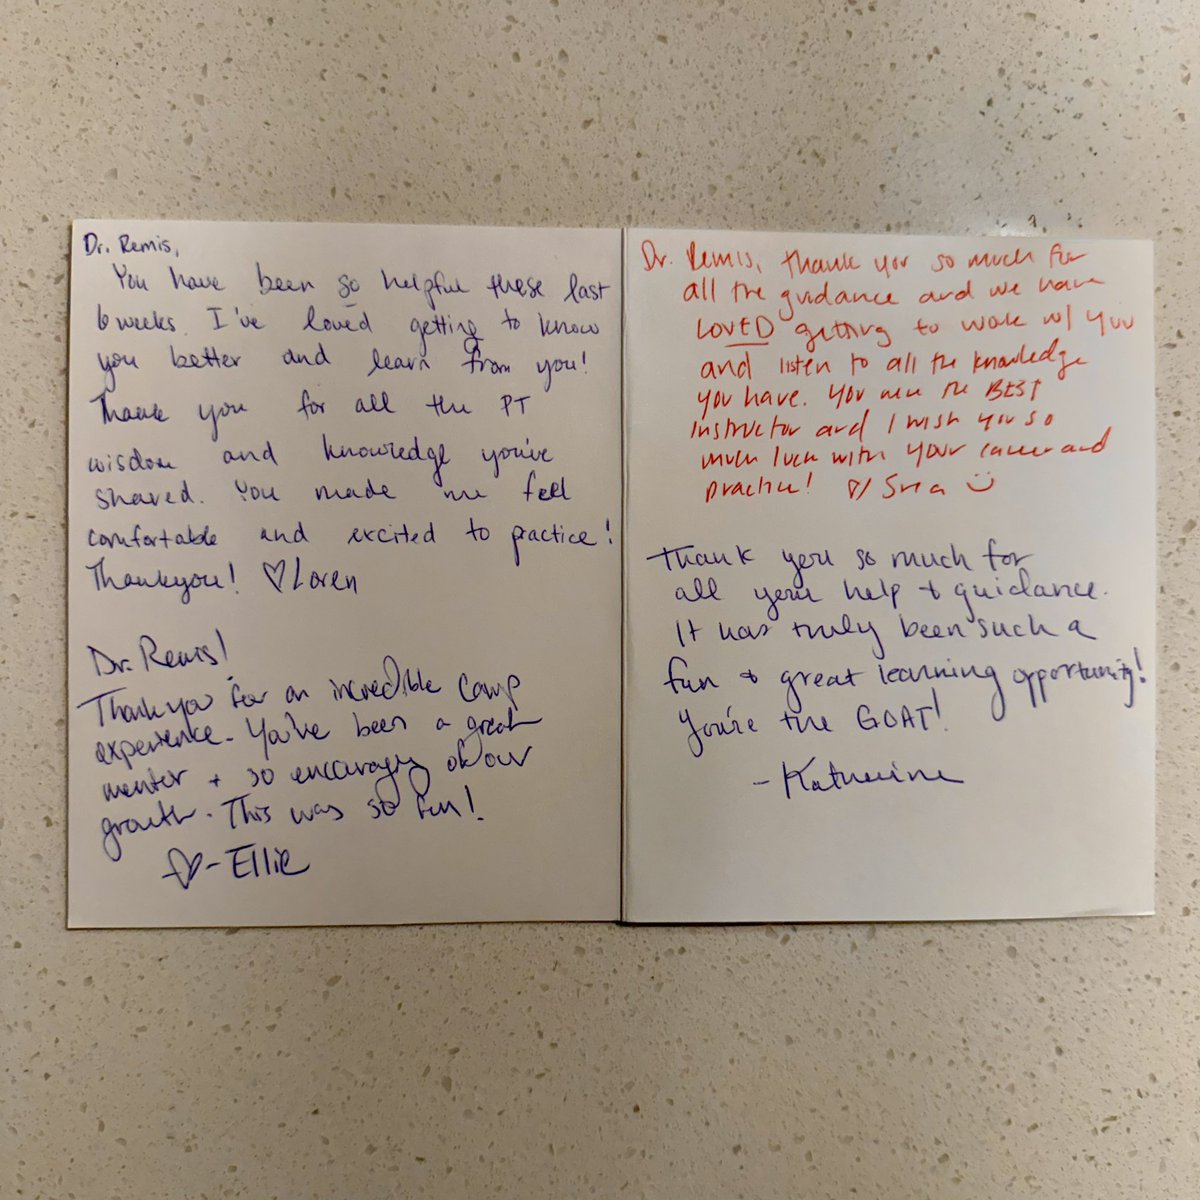 Dr. Remis,
You have been so helpful these last
6 weeks. I've loved getting to know
you better and learn from you!
Thank you for all the PT
wisdom and knowledge you've
shared. You made me feel
comfortable and excited to practice!
Thankyou! ♡Loren
Dr. Remis!
Thank you for an incredible camp
experience. You've been a great
mentor + so encouraging of our
growth. This was so fun!
♡-Ellie
Dr. Remis, thank you so much for
all the guidance and we have
LOVED getting to work w/ you
and listen to all the knowledge
you have. You are the BEST
instructor and I wish you so
much luck with your career and
practice! ♡/
Thank you so much for
all your help + guidance.
It has truly been such a
fun + great learning opportunity!
You're the GOAT!
-Katherine